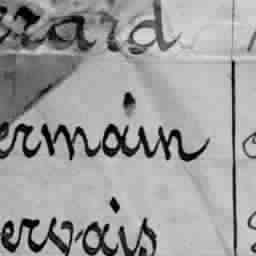 erard
ermain
ervais